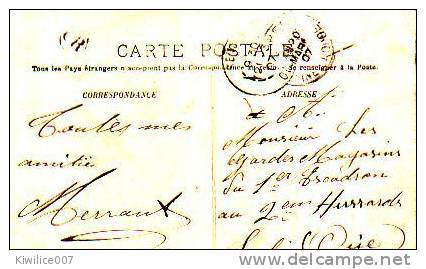 CARTE POSTALE
Tous les Pays étrangers n'acceptent pas la Correspondance
se renseigner à la Poste.
CORRESPONDANCE
Toutes mes
amitiés
Merraux
ADRESSE
A
Monsieur Les
Gardes Magasins
du 1er Escadron
au 2em Hussards
Kiwilice007
delcampe.net